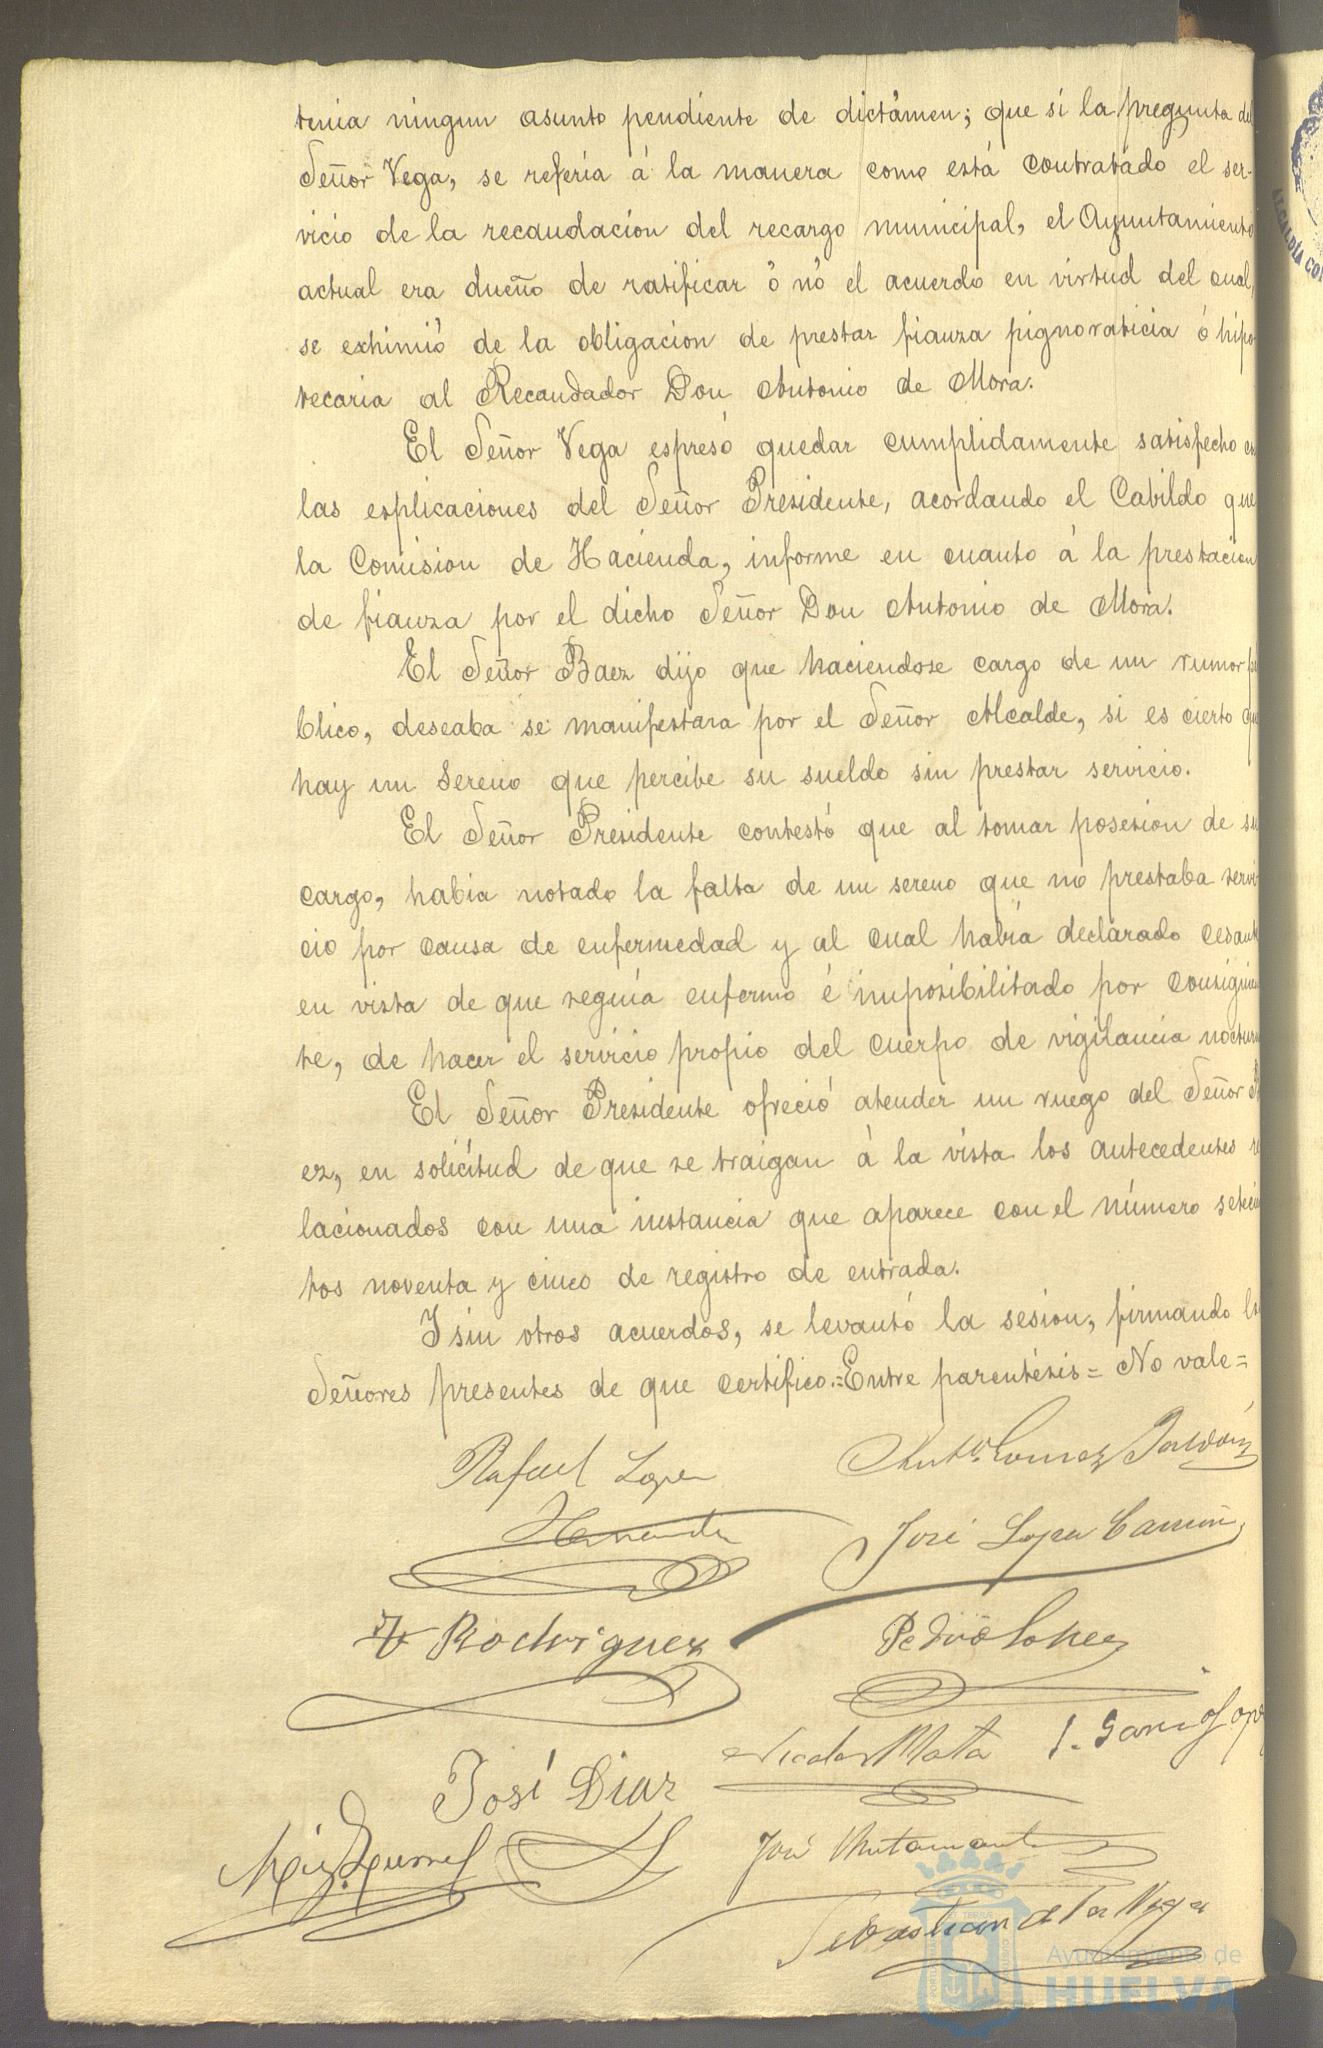 tenia ningun asunto pendiente de dictámen; que si la pregunta del
Señor Vega, se referia á la manera como está contratado el ser-
vicio de la recaudacion del recargo municipal, el Ayuntamiento
actual era dueño de ratificar ó nó el acuerdo en virtud del cual,
se exhimió de la obligacion de prestar fianza pignoraticia ó hipo
tecaria al Recaudador Don Antonio de Mora.
El Señor Vega espresó quedar cumplidamente satisfecho
las esplicaciones del Señor Presidente, acordando el Cabildo que
la Comision de Hacienda, informe en cuanto á la prestacion
de fianza por el dicho Señor Don Antonio de Mora.
El Señor Baez dijo que haciendose cargo de un rumor
blico, deseaba se manifestara por el Señor Alcalde, si es cierto que
hay un Sereno que percibe su sueldo sin prestar servicio.
El Señor Presidente contestó que al tomar posesion de su
cargo, habia notado la falta de un sereno que no prestaba servi
cio por causa de enfermedad y al cual habia declarado cesant
en vista de que seguia enfermo é imposibilitado por consiguien
te, de hacer el servicio propio del cuerpo de vigilancia nocturn
El Señor Presidente ofreció atender un ruego del Señor
ez, en solicitud de que se traigan á la vista los antecedentes re
lacionados con una instancia que aparece con el número setecien
tos noventa y cinco de registro de entrada.
Y sin otros acuerdos, se levantó la sesion, firmando los
Señores presentes de que certifico.=Entre parentésis= No vale=
Rafael Lopez
Hernandez
Antº. Gomez Roldán
José Lopez Carrion
Rodriguez
Pedro Lopez
Nicolas Mata
José Diaz
José
Sebastian de la Vega
Ayuntamiento de
HUELVA
ALCALDÍA CO